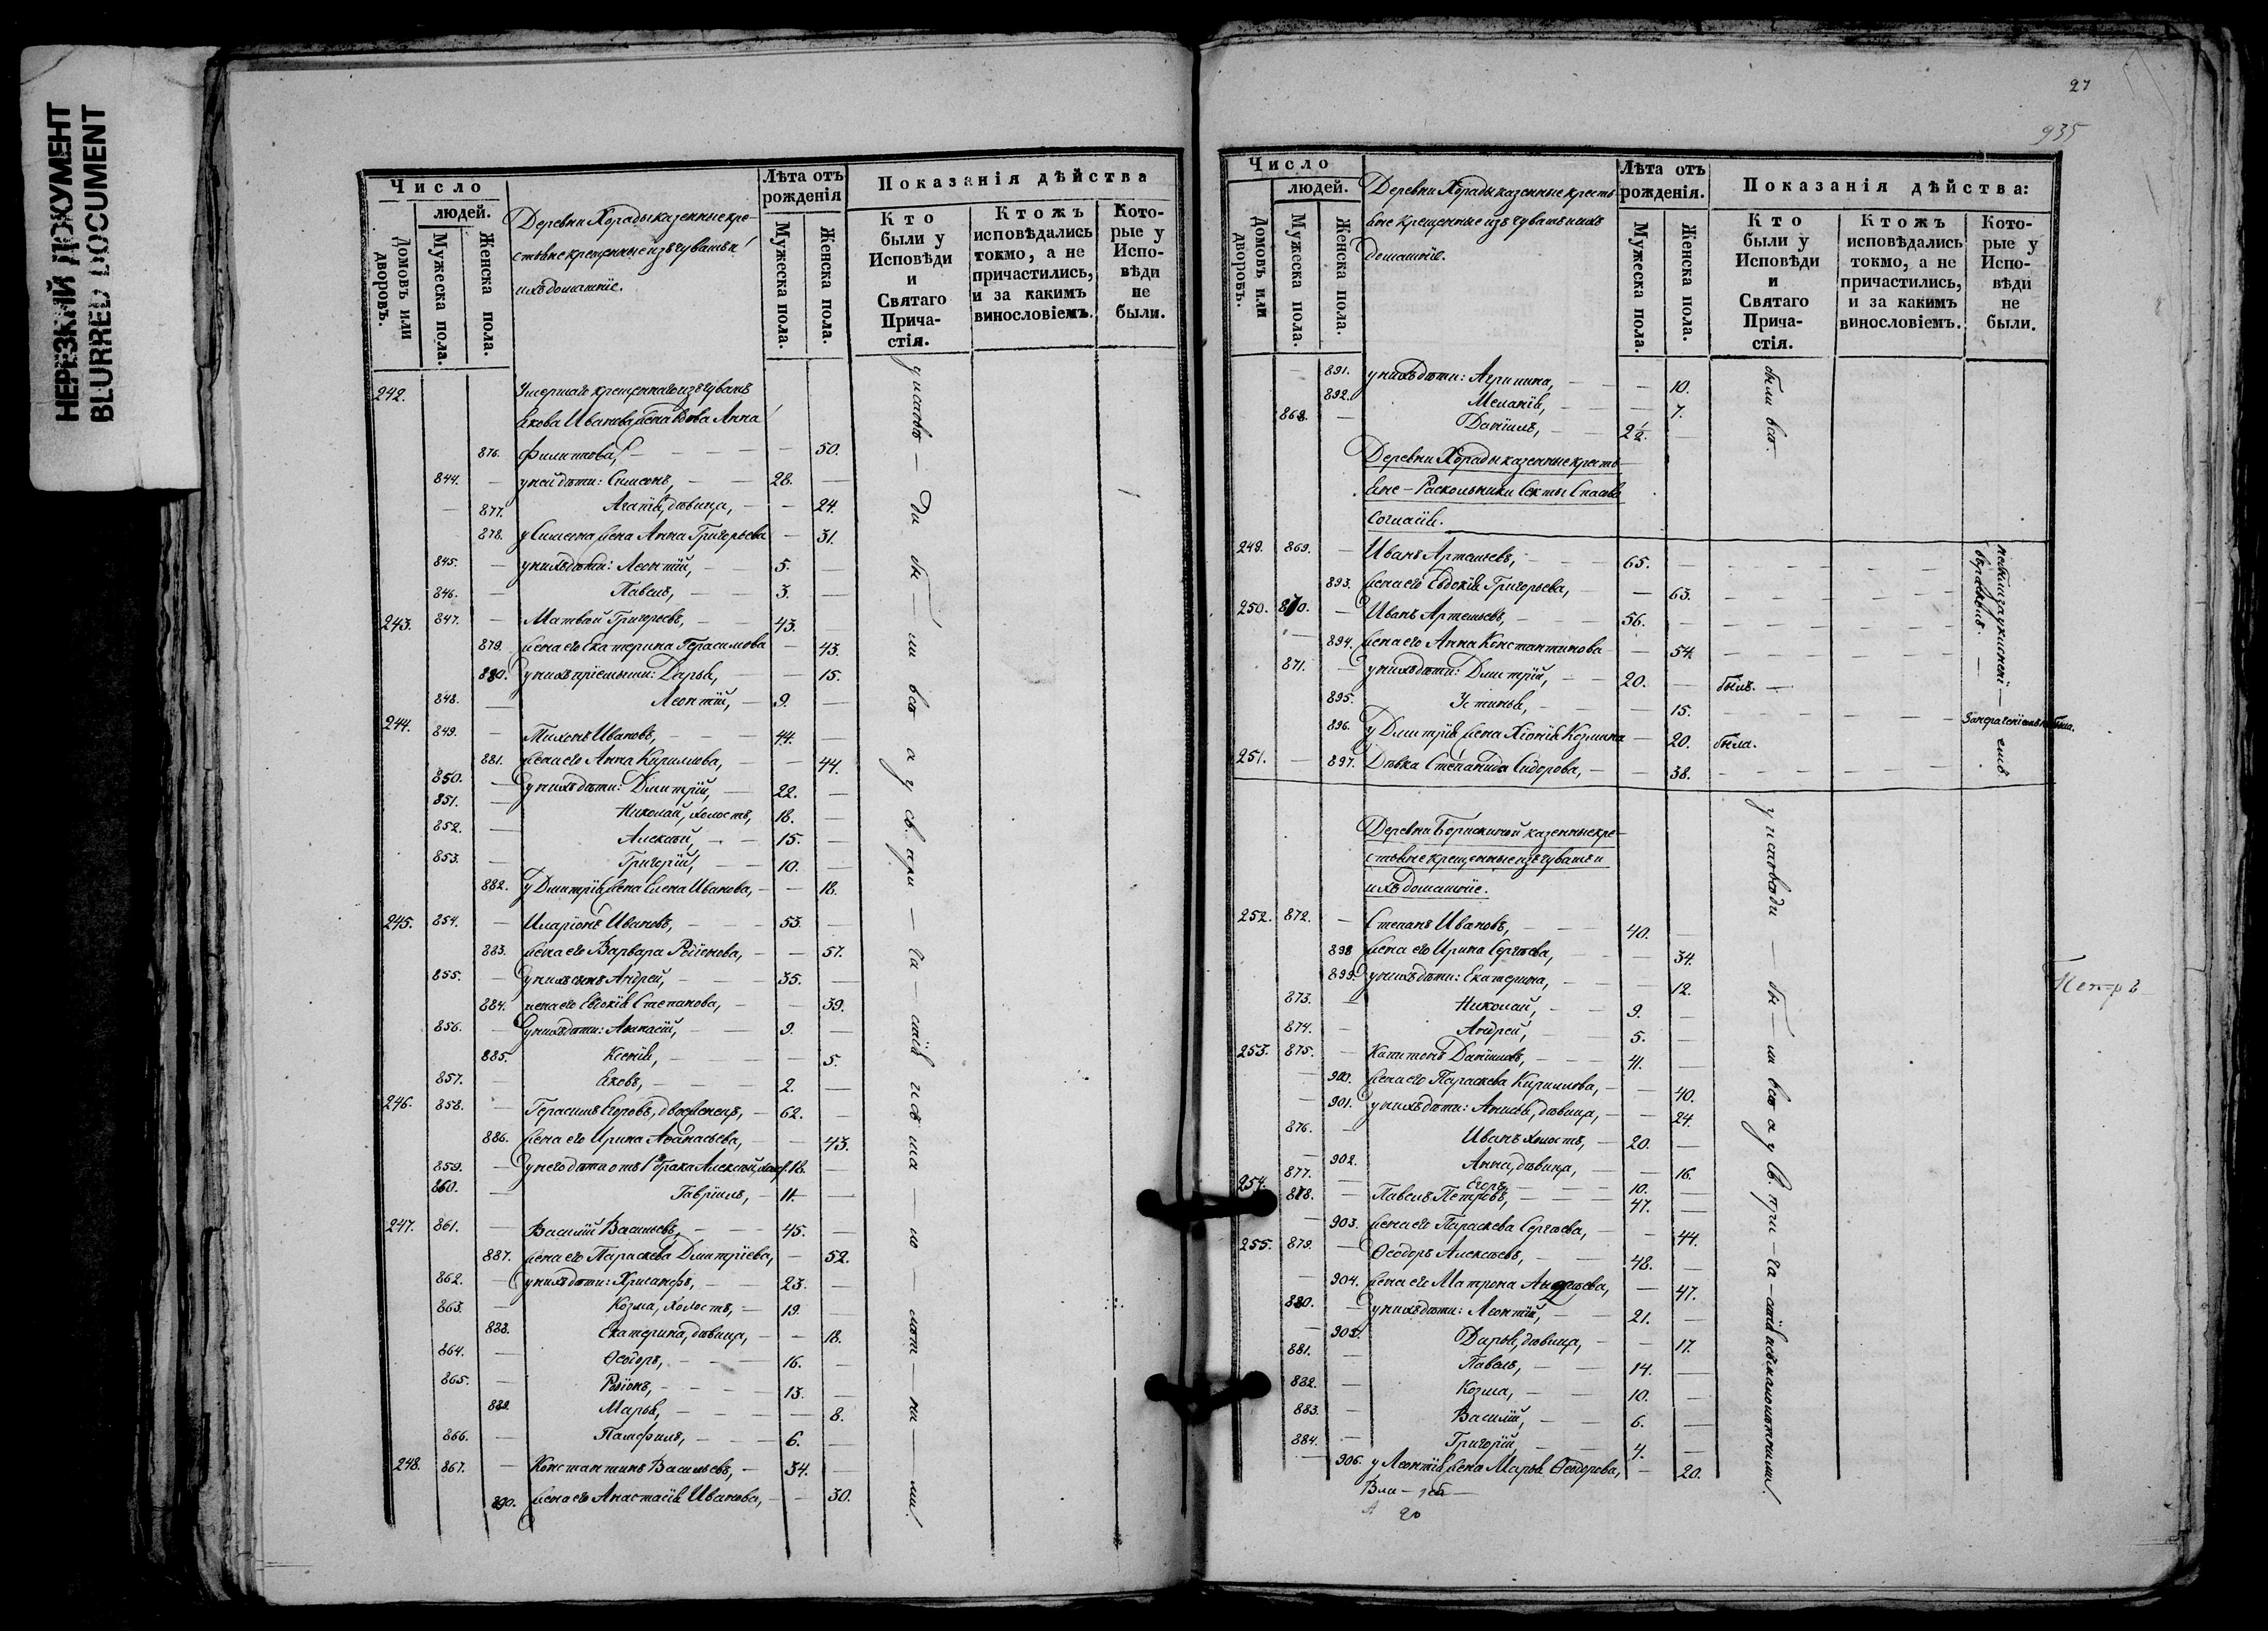 НЕРЕЗКИЙ ДОКУМЕНТ
BLURRED DOCUMENT
Число
людей.
Домовъ или дворовъ.
Мужеска пола.
Женска пола.
Деревни Хорады казенные кре-
стьяне крещенные изъ чувашъ и
ихъ домашніе.
Лѣта отъ рожденія
Мужеска пола.
Женска пола.
Показанія дѣйства
Кто были у Исповѣди и Святаго Прича-стія.
Ктожъ исповѣдались токмо, а не причастились, и за какимъ винословіемъ.
Кото-рые у Испо-вѣди не были.
242. Умершаго крещеннаго изъ чувашъ
Якова Иванова жена вдова Анна
876. Филипова, — 50.
844. у ней дѣти: Симеонъ, — 28.
877. Агапія, дѣвица, — 24.
878. у Симеона жена Анна Григорьева — 31.
845. у нихъ дѣти: Леонтій, — 5.
846. Павелъ, — 3.
243. 847. Матвей Григорьевъ, — 43.
879. жена его Екатерина Герасимова — 43.
880. у нихъ пріемыши: Дарья, — 15.
848. Леонтій, — 9.
244. 849. Тихонъ Ивановъ, — 44.
881. жена его Анна Кирилова, — 44.
850. у нихъ дѣти: Дмитрій, — 22.
851. Николай, холостъ, 18.
852. Алексѣй, — 15.
853. Григорій, — 10.
882. у Дмитрія жена Елена Иванова, — 18.
245. 854. Иларіонъ Ивановъ, — 53.
883. жена его Варвара Родіонова, — 57.
855. у нихъ сынъ Андрей, — 35.
884. жена его Евдокія Степанова, — 39.
856. у нихъ дѣти: Афанасій, — 9.
885. Ксенія, — 5.
857. Яковъ, — 2.
246. 858. Герасимъ Егоровъ, двоеженецъ, — 62.
886. жена его Ирина Афанасьева, — 43.
859. у него дѣти отъ 1го брака Алексѣй, хол. 18.
860. Гавріилъ, — 11.
247. 861. Василій Васильевъ, — 45.
887. жена его Параскева Дмитріева, — 52.
862. у нихъ дѣти: Хрисанфъ, — 23.
863. Козма, холостъ, — 19.
888. Екатерина, дѣвица, — 18.
864. Ѳеодоръ, — 16.
865. Родіонъ, — 13.
889. Марья, — 8.
866. Памфилъ, — 6.
248. 867. Константинъ Васильевъ, — 34.
890. жена его Анастасія Иванова, — 30.
27
935
Число
людей.
Домовъ или дворовъ.
Мужеска пола.
Женска пола.
Деревни Хорады казенные кресть-
яне крещенные изъ чувашъ и ихъ
домашніе.
Лѣта отъ рожденія.
Мужеска пола.
Женска пола.
Показанія дѣйства:
Кто были у Исповѣди и Святаго Прича-стія.
Ктожъ исповѣдались токмо, а не причастились, и за какимъ винословіемъ.
Кото-рые у Испо-вѣди не были.
891. у нихъ дѣти: Агрипина, — 10.
892. Меланія, — 7.
868. Даніилъ, — 2½.
были всѣ.
Деревни Хорады казенные кресть-
яне — Раскольники Секты Спасова
Согласія.
249. 869. Иванъ Артемьевъ, — 65.
893. жена его Евдокія Григорьева, — 63.
250. 870. Иванъ Артемьевъ, — 56.
894. жена его Анна Константинова — 54.
871. у нихъ дѣти: Дмитрій, — 20. былъ.
895. Устинья, — 15.
896. у Дмитрія жена Хіонія Козмина — 20. была.
251. 897. Дѣвка Степанида Сидорова, — 38.
Деревни Борискиной казенные кре-
стьяне крещенные изъ чувашъ и
ихъ домашніе.
252. 872. Степанъ Ивановъ, — 40.
898 жена его Ирина Сергѣева, — 34.
899. у нихъ дѣти: Екатерина, — 12.
873. Николай, — 9.
874. Андрей, — 5.
253. 875. Капитонъ Даниловъ, — 41.
900. жена его Параскева Кирилова, — 40.
901. у нихъ дѣти: Анисья, дѣвица, — 24.
876. Иванъ холостъ, — 20.
902. Анна, дѣвица, — 16.
877. Егоръ, — 10.
254. 878. Павелъ Петровъ, — 47.
903. жена его Параскева Сергѣева, — 44.
255. 879. Ѳеодоръ Алексѣевъ, — 48.
904. жена его Матрона Андреева, — 47.
880. у нихъ дѣти: Леонтій, — 21.
905. Дарья, дѣвица, — 17.
881. Павелъ, — 14.
882. Козма, — 10.
883. Василій, — 6.
884. Григорій, — 4.
906. у Леонтія жена Марья Ѳеодорова, — 20.